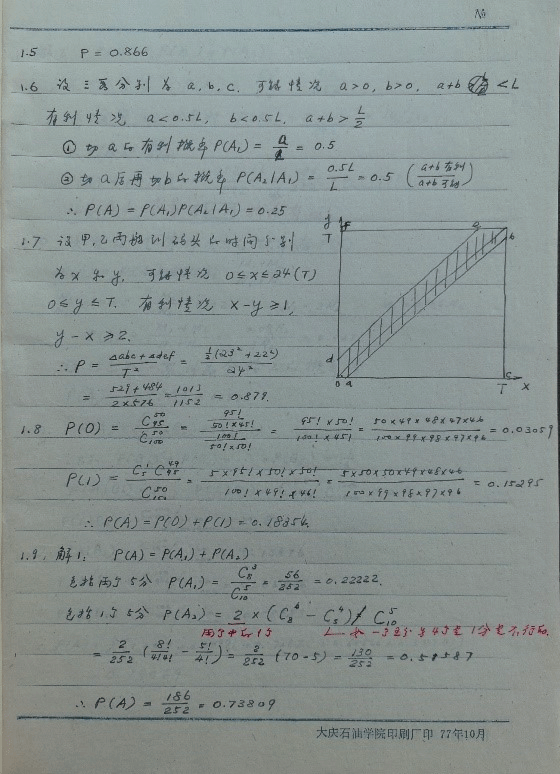 №
1.5 P = 0.866
1.6 设三落分别为 a, b, c. 可能情况 a>0, b>0, a+b < L
有利情况 a<0.5L, b<0.5L, a+b > L/2
① 切a的有利概率 P(A₁) = = 0.5
② 切a后再切b的概率 P(A₂|A₁) = 0.5L/L = 0.5 (a+b有利/a+b可能)
∴ P(A) = P(A₁)P(A₂|A₁) = 0.25
1.7 设甲,乙两船到码头的时间分别
为 x 和 y, 可能情况 0≤x≤24(T)
0≤y≤T. 有利情况 x-y≥1,
y-x≥2.
∴ P = (△abc+△def)/T² = ½(23²+22²)/24²
= (529+484)/(2×576) = 1013/1152 = 0.879.
y F e
T b
d
0 a T c x
1.8 P(0) = C₉₅⁵⁰/C₁₀₀⁵⁰ = (95!/(50!×45!))/(100!/(50!×50!)) = (95!×50!)/(100!×45!) = (50×49×48×47×46)/(100×99×98×97×96) = 0.03059
P(1) = C₅¹C₉₅⁴⁹/C₁₀₀⁵⁰ = (5×95!×50!×50!)/(100!×49!×46!) = (5×50×50×49×48×46)/(100×99×98×97×96) = 0.15295
∴ P(A) = P(0)+P(1) = 0.18354.
1.9. 解1: P(A) = P(A₁)+P(A₂)
包括两个5分 P(A₁) = C₈³/C₁₀⁵ = 56/252 = 0.22222.
包括1个5分 P(A₂) = 2×(C₈⁴ - C₅⁴)/C₁₀⁵
两个中的1个 4个全1分是不行的.
= 2/252 (8!/4!4! - 5!/4!) = 2/252 (70-5) = 130/252 = 0.51587
∴ P(A) = 186/252 = 0.73809
大庆石油学院印刷厂印 77年10月